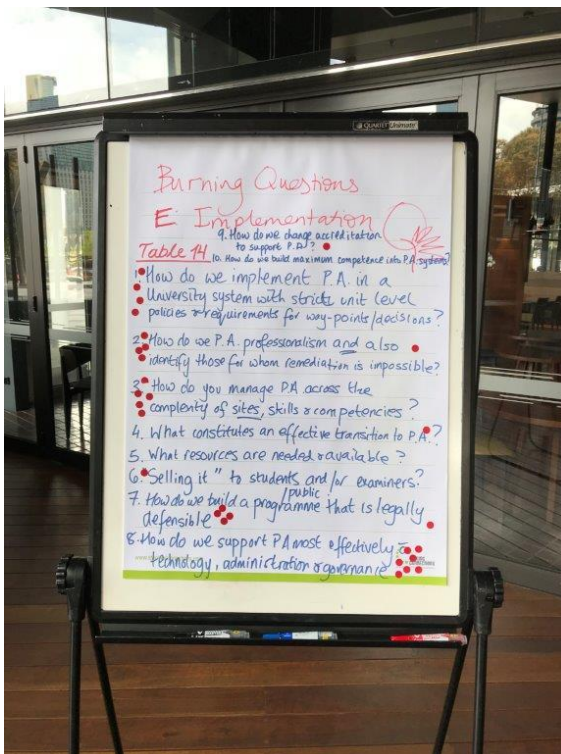 QUARTET Unimate
Burning Questions
E Implementation
9. How do we change accreditation
to support P.A.?
Table 14
10. How do we build maximum competence into P.A. systems?
1. How do we implement P.A. in a
University system with strict unit level
policies & requirements for way-points/decisions?
2. How do we P.A. professionalism and also
identify those for whom remediation is impossible?
3. How do you manage P.A. across the
complexity of sites, skills & competencies?
4. What constitutes an effective transition to P.A.?
5. What resources are needed & available?
6. "Selling it" to students and/or examiners?
7. How do we build a programme that is legally
/public
defensible
8. How do we support PA most effectively c̄
technology, administration & governance